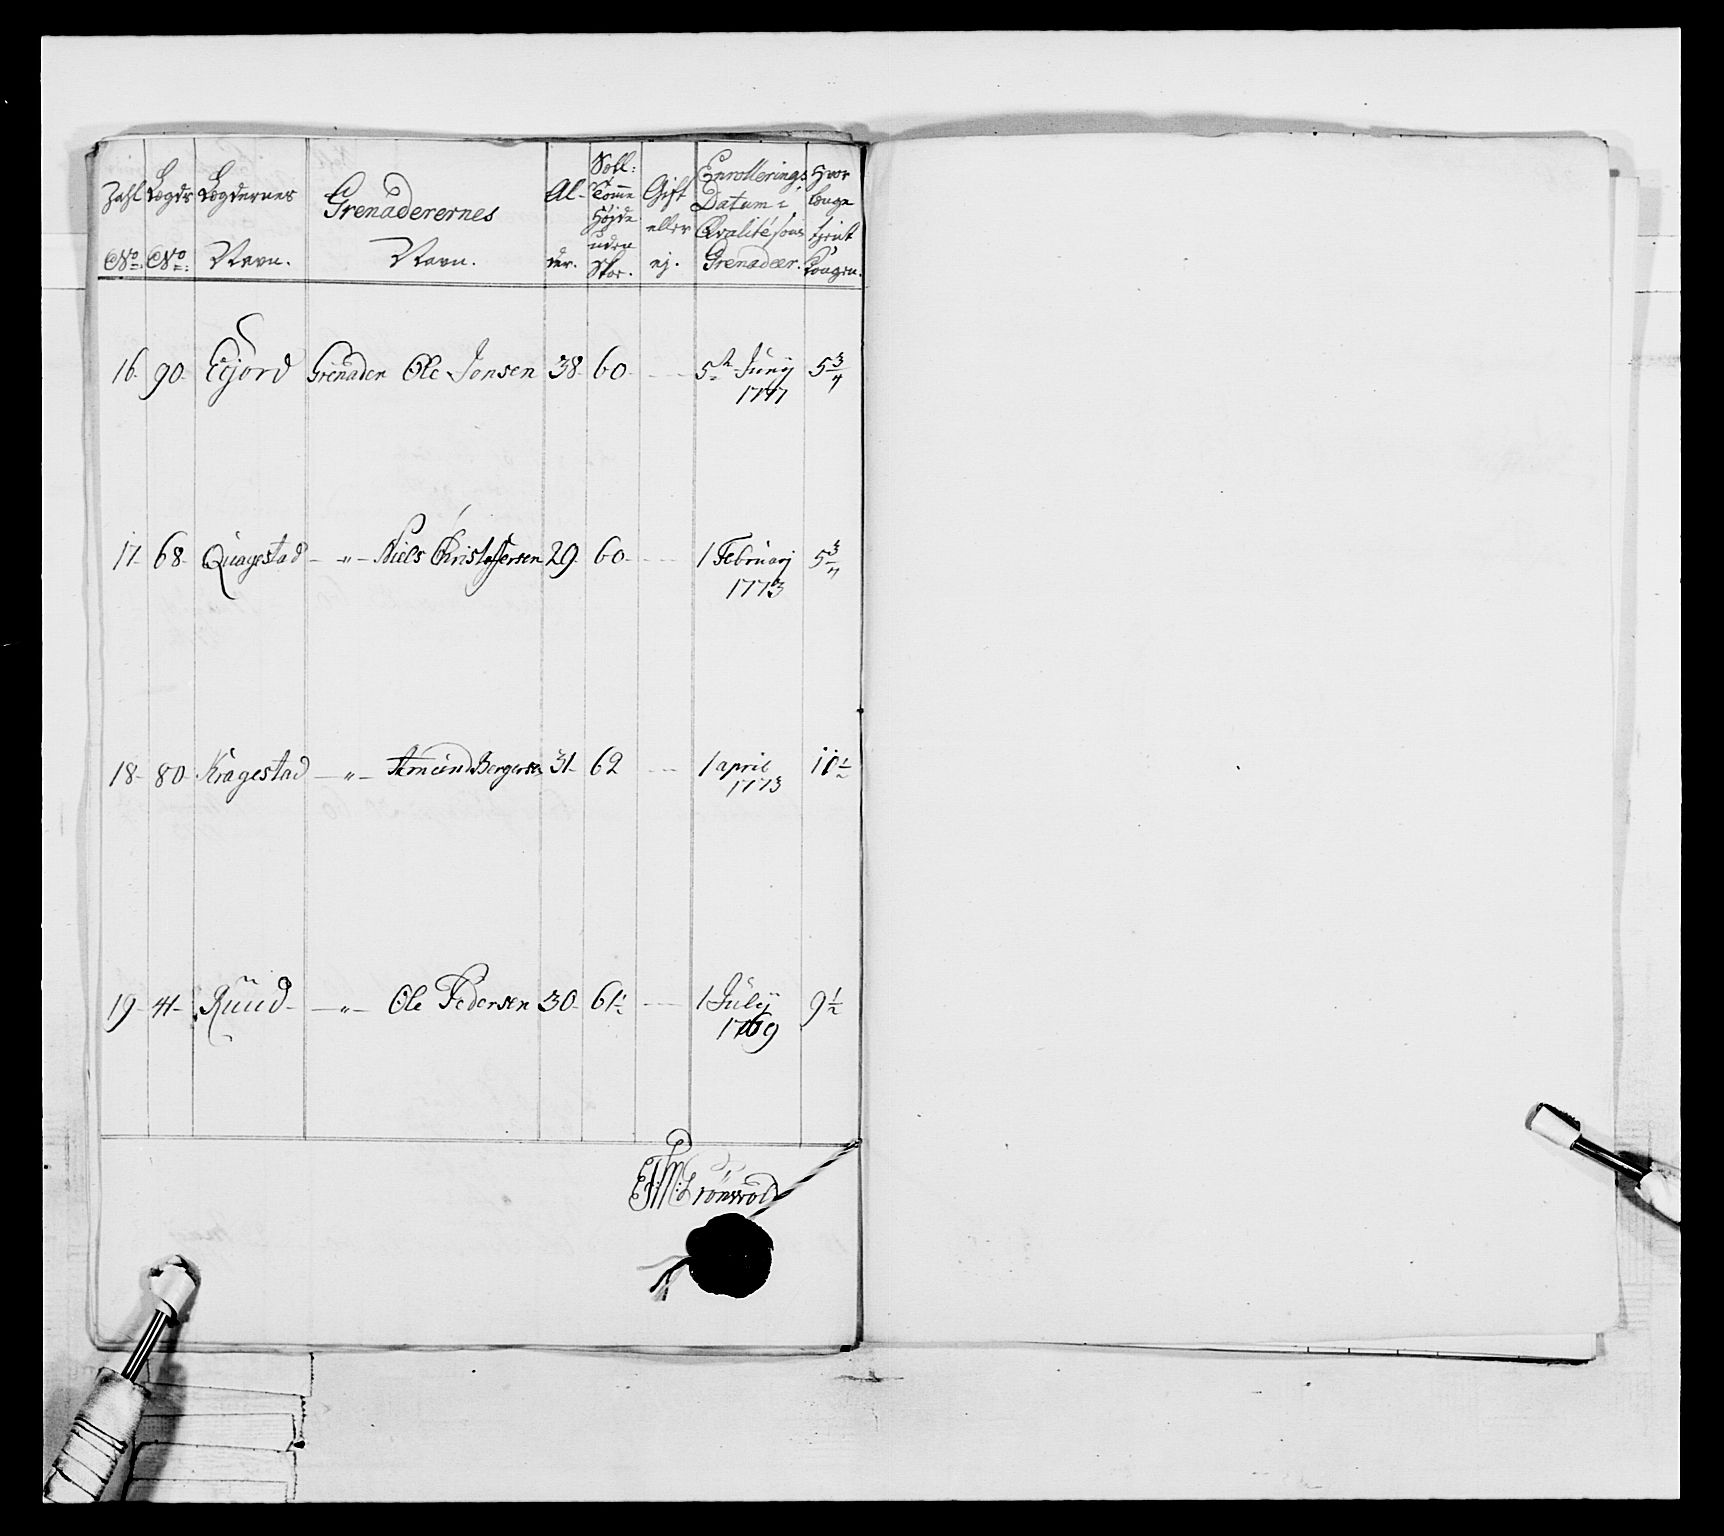 Zahl No: Lægds No: Lægdernes Navn. Grenaderernes Navn. Al-der. Soll: Tomme Høyde uden Skoe. Gift eller ej. Enrollerings Datum i Qvalité som Grenadeer. Hvor længe tient Kongen.
16. 90. Grenader Ole Jonsen 38. 60. 5te Junij 5 3/4
17. 68. Quagestad — " — Niels Christoffersen 29. 60. 1 Februarj 5 3/4
1773
18. 80. Kragestad — " — Amund Bergersen 31. 62 1 april 11 1/2
1773
19. 41. Ruud — " — Ole Pedersen 30. 61 1/2 1 Julij 9 1/2
1769